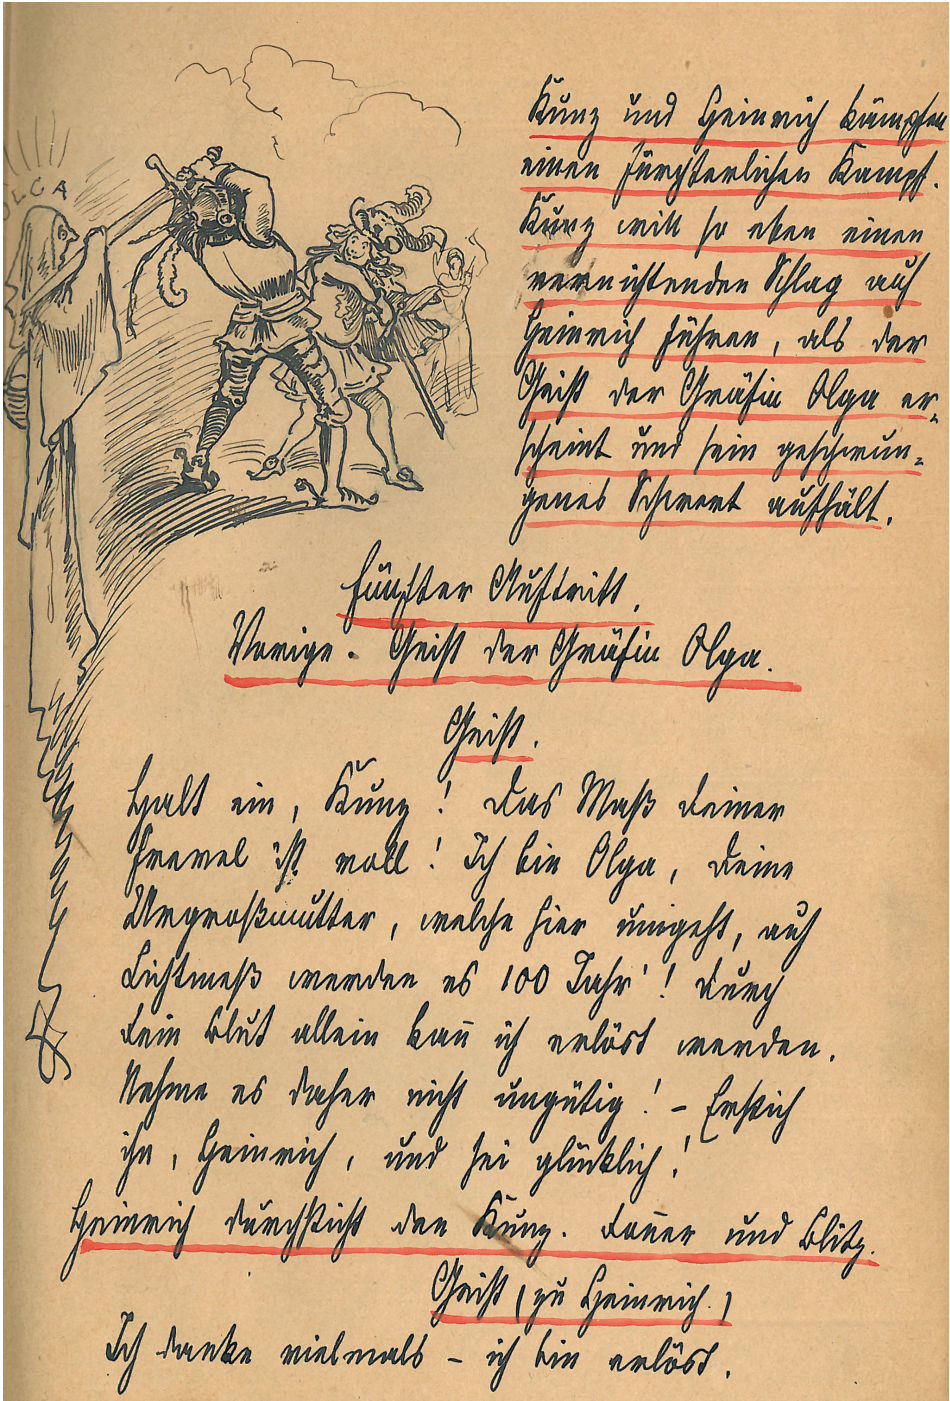 OLGA
Kunz und Heinrich kämpfen
einen fürchterlichen Kampf.
Kunz will so eben einen
vernichtenden Schlag auf
Heinrich führen, als der
Geist der Gräfin Olga er-
scheint und sein geschwun-
genes Schwert aufhält.
Fünfter Auftritt.
Vorige. Geist der Gräfin Olga.
Geist.
Halt ein, Kunz! Das Maß deiner
Frevel ist voll! Ich bin Olga, deine
Urgroßmutter, welche hier umgeht, auf
Lichtmeß werden es 100 Jahr'! Durch
dein Blut allein kan̄ ich erlöst werden.
Nehme es daher nicht ungütig! – Erstich
ihn, Heinrich, und sei glücklich!
Heinrich durchsticht den Kunz. Don̄er und Blitz.
Geist (zu Heinrich.)
Ich danke vielmals – ich bin erlöst.